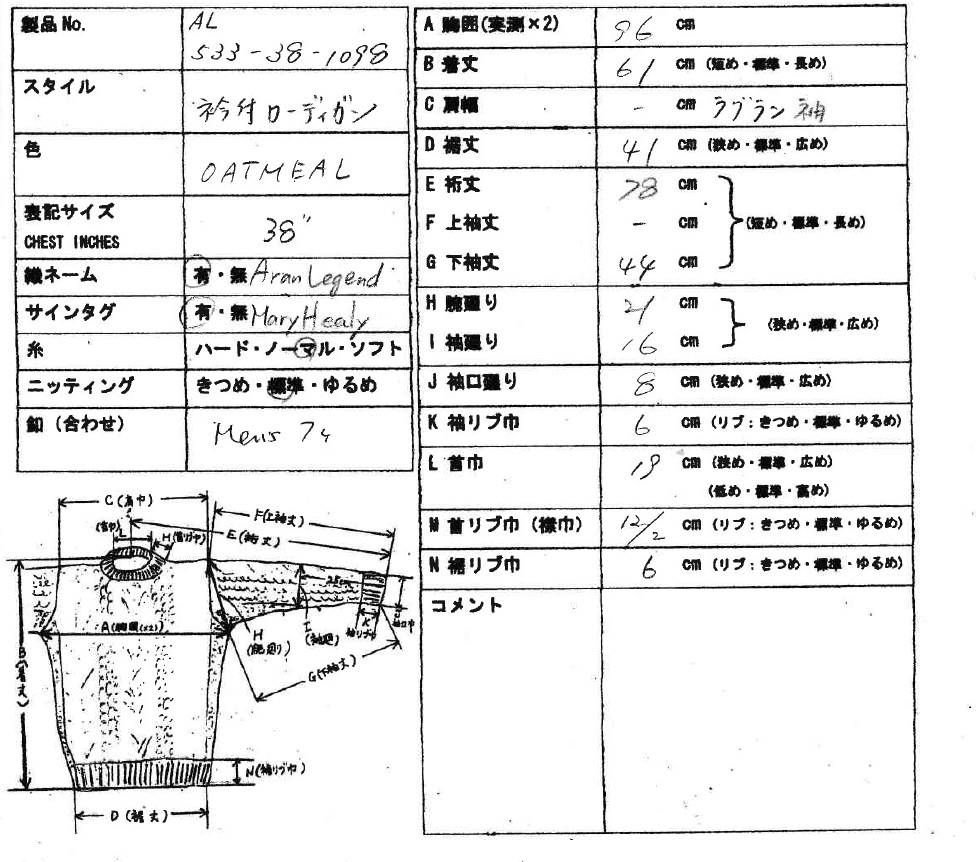 製品No.
AL
533-38-1098
スタイル
衿付カーディガン
色
OATMEAL
表記サイズ
CHEST INCHES
38"
織ネーム
有・無 Aran Legend
サインタグ
有・無 Mary Healy
糸
ハード・ノーマル・ソフト
ニッティング
きつめ・標準・ゆるめ
釦(合わせ)
Men's 7ヶ
A 胸囲(実測×2) 96 cm
B 着丈 61 cm (短め・標準・長め)
C 肩幅 - cm ラグラン袖
D 裾丈 41 cm (狭め・標準・広め)
E 裄丈 78 cm
F 上袖丈 - cm (短め・標準・長め)
G 下袖丈 44 cm
H 腕廻り 21 cm
I 袖廻り 16 cm (狭め・標準・広め)
J 袖口廻り 8 cm (狭め・標準・広め)
K 袖リブ巾 6 cm (リブ:きつめ・標準・ゆるめ)
L 首巾 19 cm (狭め・標準・広め)
(低め・標準・高め)
M 首リブ巾(襟巾) 12/2 cm (リブ:きつめ・標準・ゆるめ)
N 裾リブ巾 6 cm (リブ:きつめ・標準・ゆるめ)
コメント
C(肩巾)
F(上袖丈)
(首巾)
L
E(裄丈)
A(胸囲(×2))
B(着丈)
H
(腕廻り)
I
(袖廻)
K
袖リブ巾
袖口巾
G(下袖丈)
N(裾リブ巾)
D(裾丈)